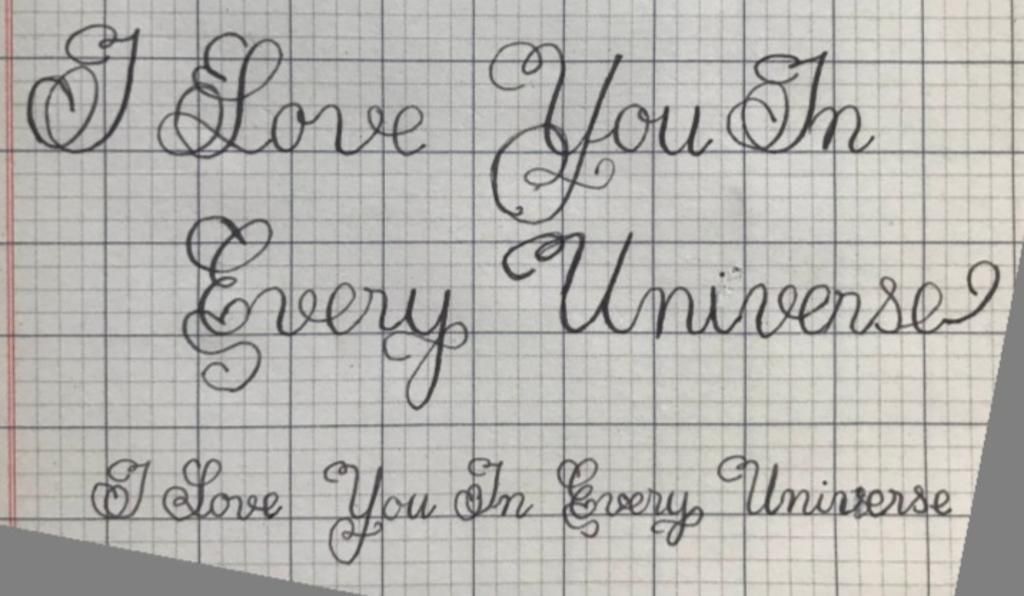 I Love You In
Every Universe
I Love You In Every Universe